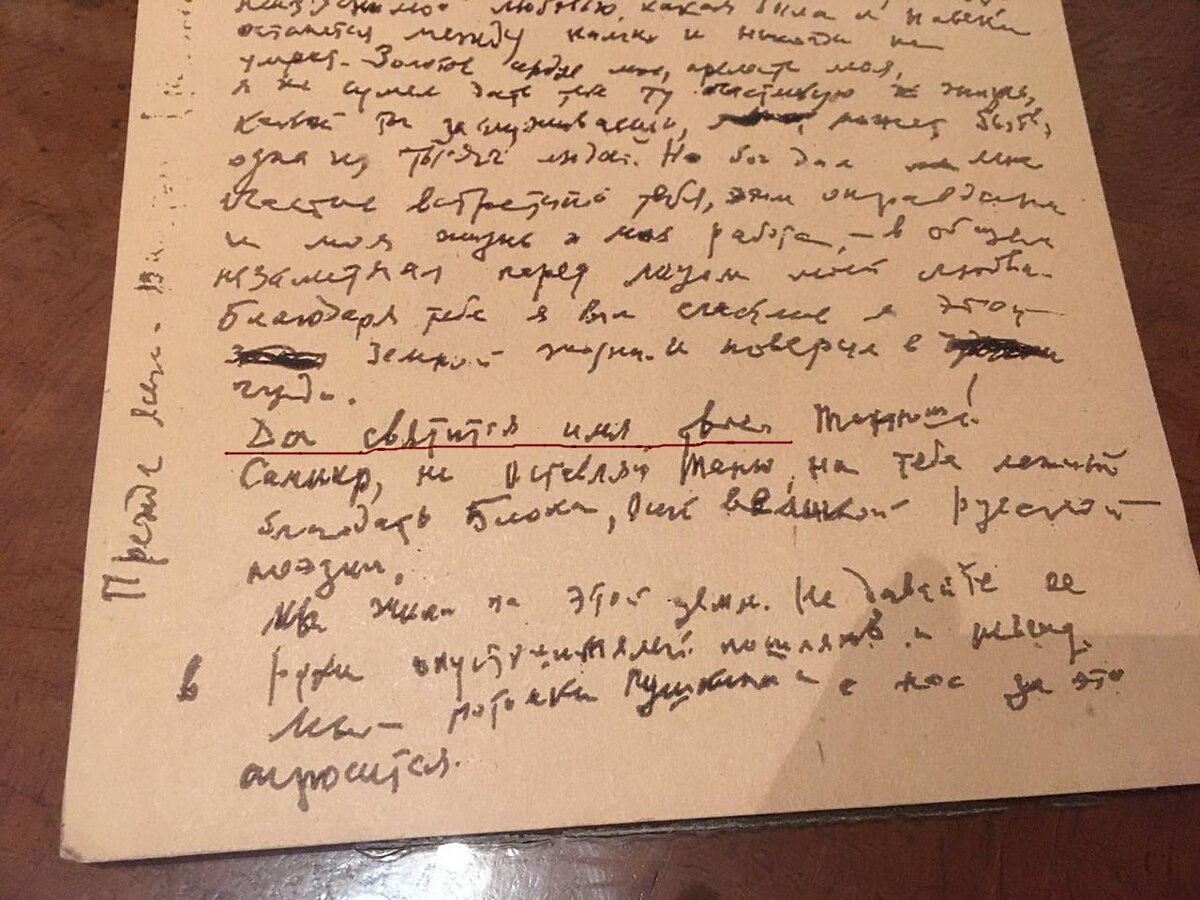 любовью, какая была и навеки
останется между нами и никогда не
умрет. Золотое сердце мое, прелесть моя,
я не сумел дать тебе ту счастливую жизнь,
какой ты заслуживаешь, может быть,
одна из тысяч людей. Но бог дал мне
счастье встретить тебя, этим оправдана
и моя жизнь и моя работа, – в общем
незаметная перед лицом моей любви.
Благодаря тебе я был счастлив в этой
земной жизни и поверил в
чудо.
Да святится имя твое Танюша!
Самуил, не оставляй Таню, на тебе лежит
благодать Блока, всей великой русской
поэзии.
Мы жили на этой земле. Не давайте ее
в руки опустошителей, пошляков и невежд.
Мы – потомки Пушкина и с нас за это
спросится.
Прежде всего –